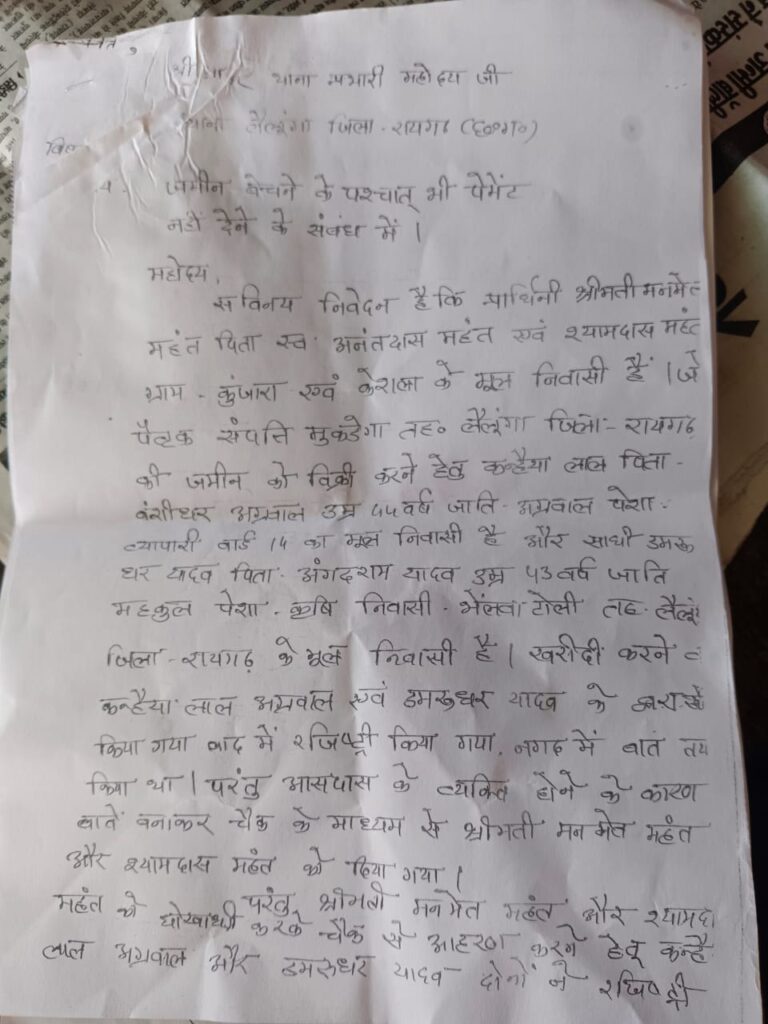 श्रीमान थाना प्रभारी महोदय जी
थाना लैलूंगा जिला - रायगढ (छ०ग०)
जमीन बेचने के पश्चात् भी पेमेंट
नहीं देने के संबंध में |
महोदय,
सविनय निवेदन है कि प्रार्थिनी श्रीमती मनमेत
महंत पिता स्व. अनंतदास महंत एवं श्यामदास महंत
ग्राम - कुंजारा एवं केराबा के मूल निवासी हैं | जो
पैतृक संपत्ति मुकडेगा तह० लैलूंगा जिला - रायगढ़
की जमीन को विक्री करने हेतु कन्हैया लाल पिता -
वंशीधर अग्रवाल उम्र 44 वर्ष जाति - अग्रवाल पेशा -
व्यापारी वार्ड 14 का मूल निवासी है और साथी डमरू
धर यादव पिता - अंगदराम यादव उम्र 43 वर्ष जाति
महकुल पेशा - कृषि निवासी - भेंलवा टोली तह. लैलूं
जिला - रायगढ़ के मूल निवासी है | खरीदी करने
कन्हैया लाल अग्रवाल एवं डमरूधर यादव के द्वारा
किया गया बाद में रजिष्ट्री किया गया. नगद में बात तय
किया था | परंतु आसपास के व्यक्ति होने के कारण
बातें बनाकर चैक के माध्यम से श्रीमती मनमेत महंत
और श्यामदास महंत को दिया गया |
परंतु श्रीमती मनमेत महंत और श्यामदा
महंत को धोखाधड़ी करके चैक से आहरण करने हेतु कन्है
लाल अग्रवाल और डमरूधर यादव दोनों ने रजिष्ट्री